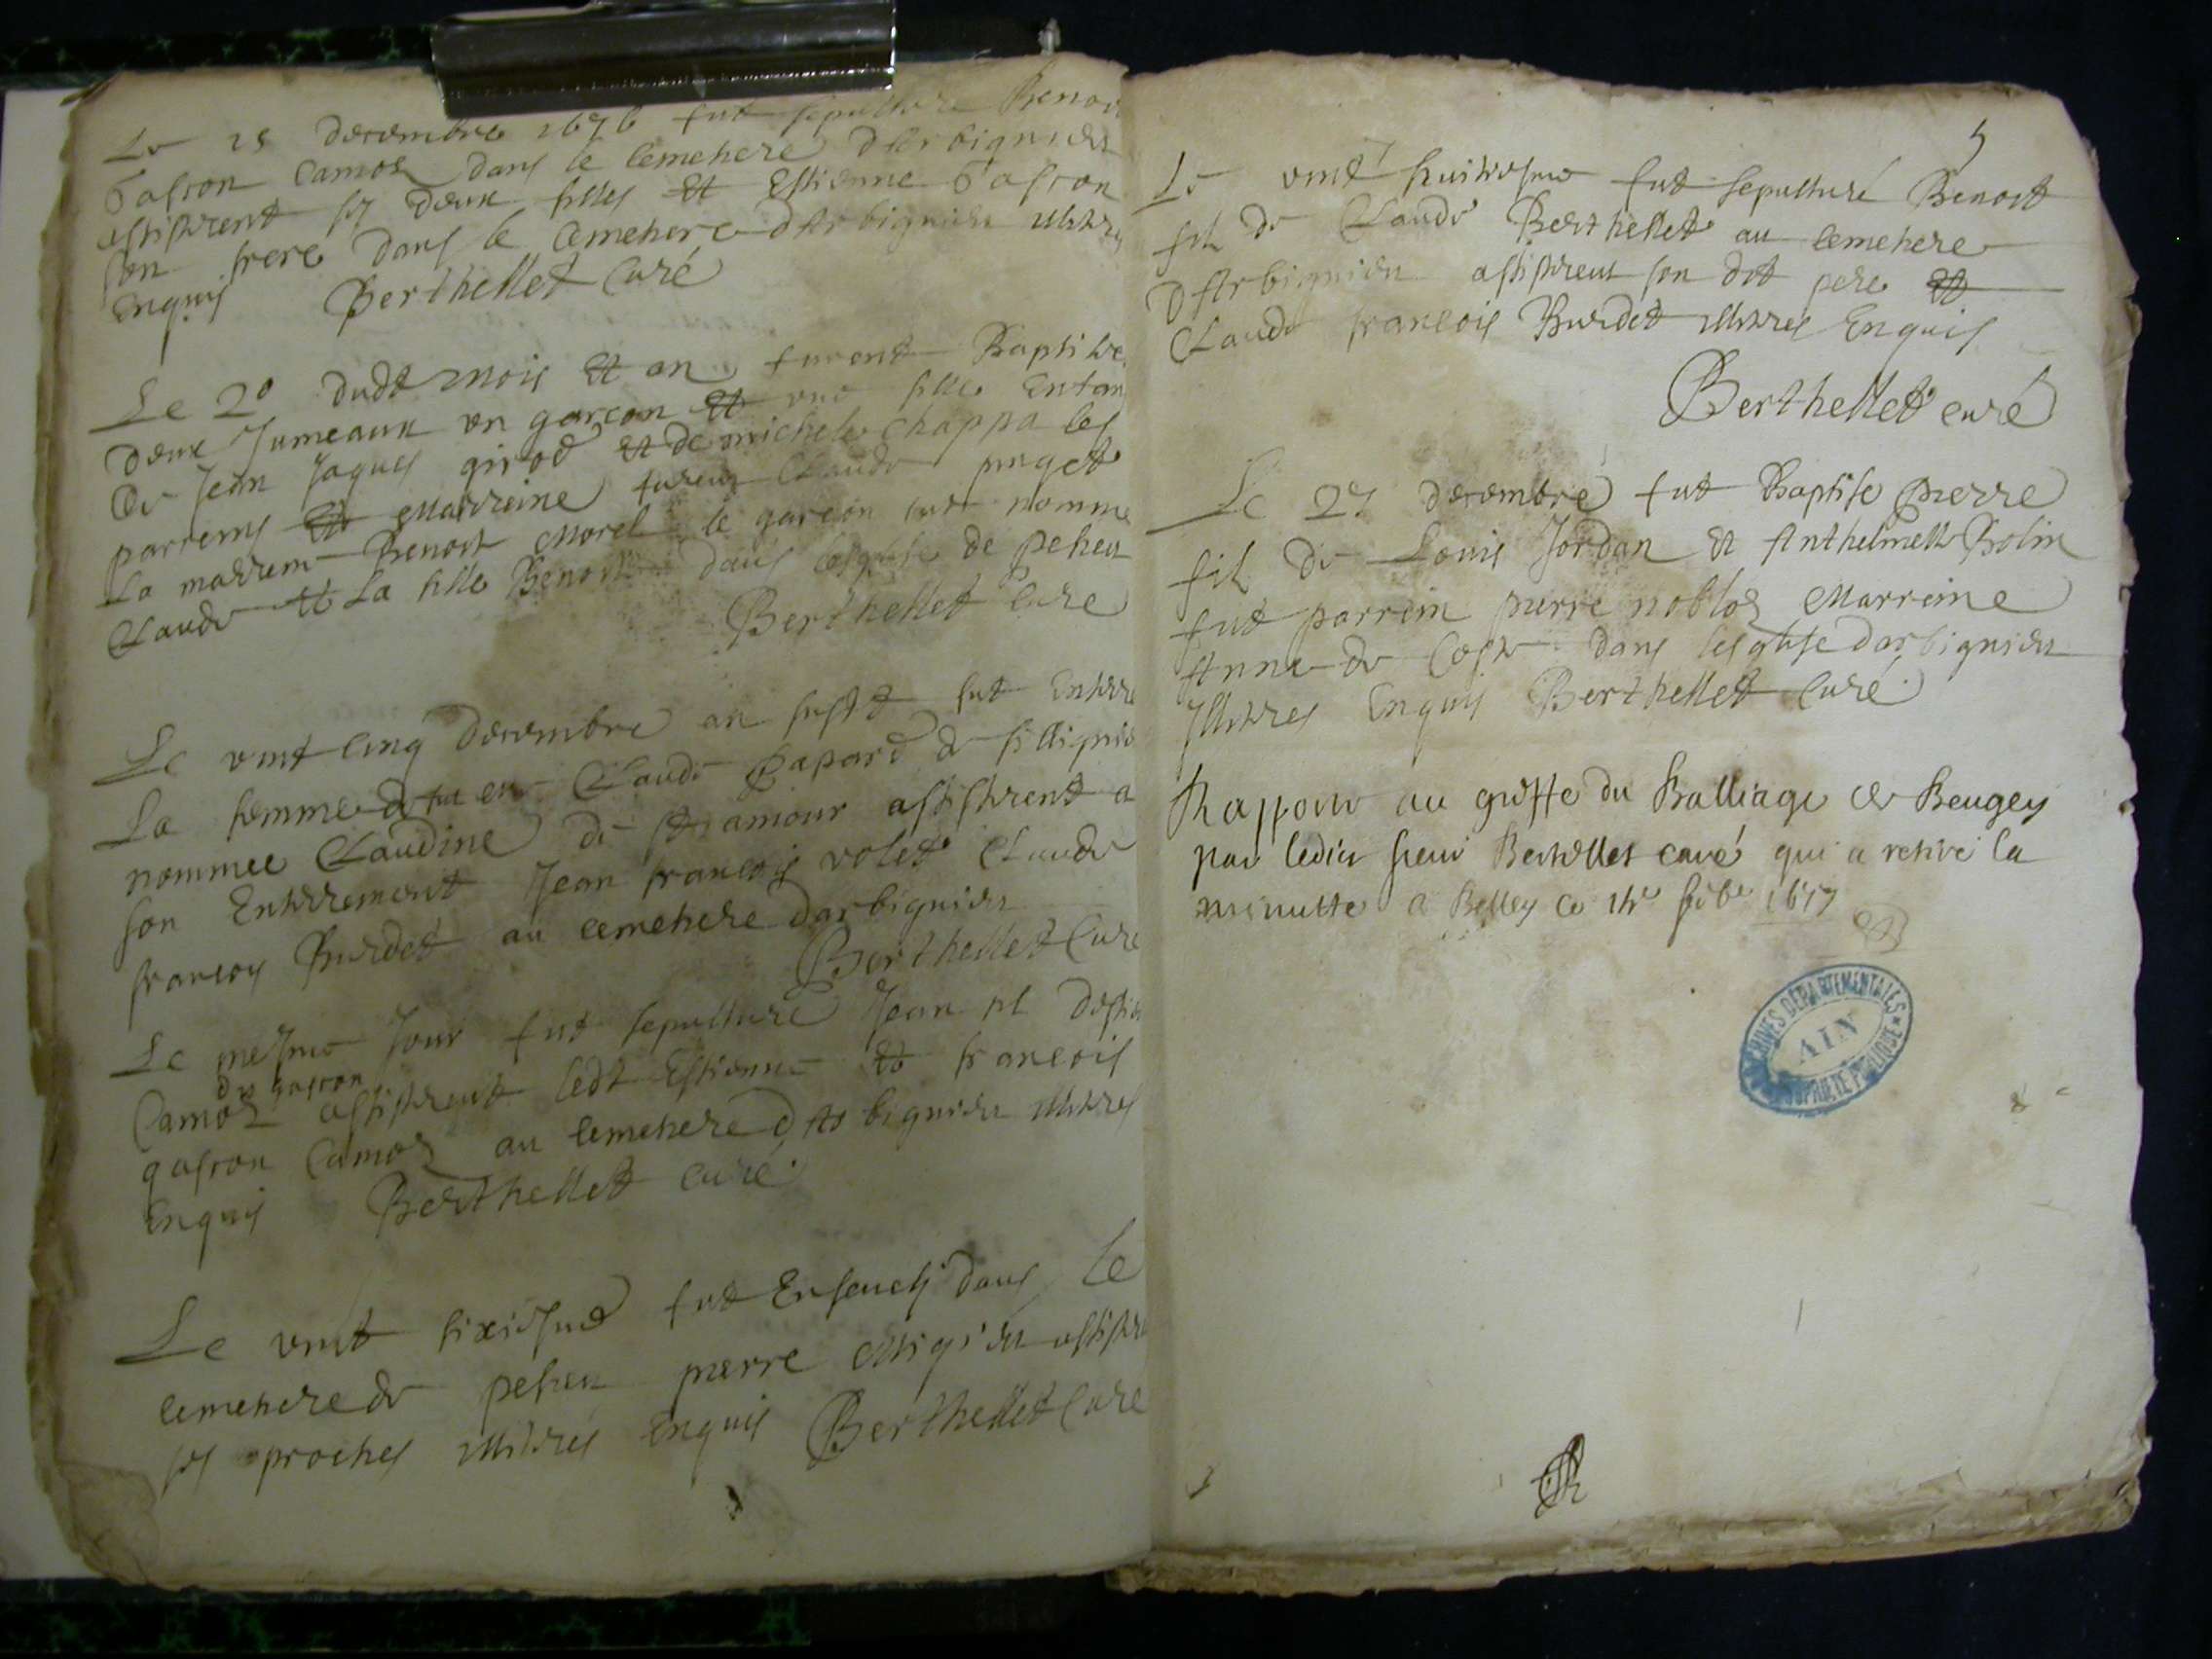 decembre 1676 fut sepulture Benoi
Gascon Camoz dans le cemetiere d'Arbignieu
assistirent ses deux filles et Estienne Gascon
son frere dans le cemetiere d'Arbignieu illitres
Enquis Berthellet Curé
Le 20 dudt mois et an furent Baptise
deux Jumeaux un garcon et une fille Enfan
de Jean Jaques girod et de michele chappa les
parreins et Marreine furent Claude puget
La marrein Benoist Morel le garcon fut nomme
Claude et la fille Benoiste dans lesglise de peheu
Berthellet Cure
Le vint cinq decembre an fut Enterre
La femme de Claude de
nommee Claudine de St amour assistirent a
son Enterrement Jean francois volet Claude
francoy Burdet au cemetiere darbignieu
Berthellet Cure
Le mesme Jour fut sepulturé Jean
du gascon
Camoz assistirent ledt Estienne et francois
gascon Camoz au cemetiere d'Arbignieu illitres
Enquis Berthellet curé
Le vint sixiesme fut Enseveli dans le
cemetiere de peheu pierre assistire
ses proches illitres Enquis Berthellet Cure
5
Le vint huitiesme fut sepulturé Benoist
fils de Claude Berthellet au cemetiere
d'Arbignieu assistirent son dit pere et
Claude francois Burdet illitres Enquis
Berthellet curé
Le 27 decembre fut Baptise pierre
fils de Louis Jordan et Anthelmette Bolin
fut parrein pierre nobloz Marreine
Anne de Coste dans lesglise darbignieu
Illitres Enquis Berthellet Curé
Rapporté au greffe du Balliage de Beugey
par ledit sieur Berthellet curé qui a retiré la
minutte a Belley ce 1677
ARCHIVES DÉPARTEMENTALES
AIN
PROPRIÉTÉ PUBLIQUE